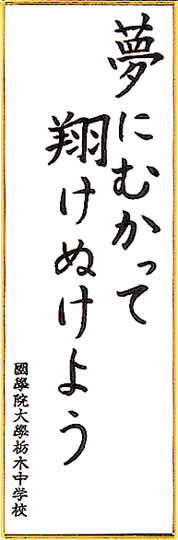 夢にむかって
翔けぬけよう
國學院大學栃木中学校